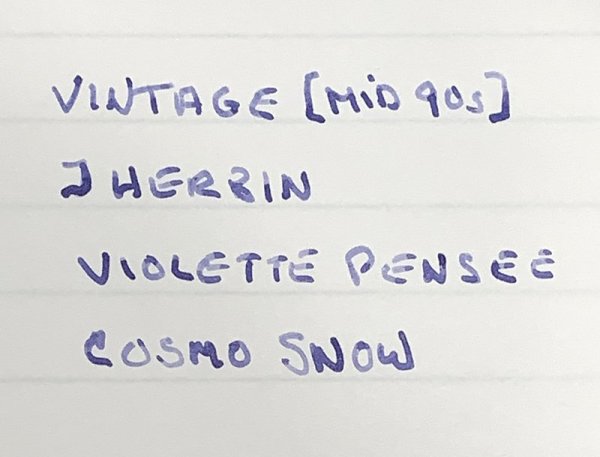 VINTAGE [MiD 90s]
J HERBIN
VIOLETTE PENSEE
COSMO SNOW